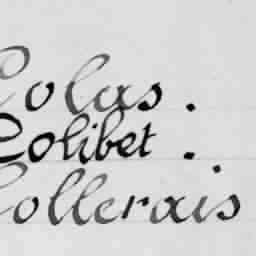 Colas.
Colibet.
Collerais